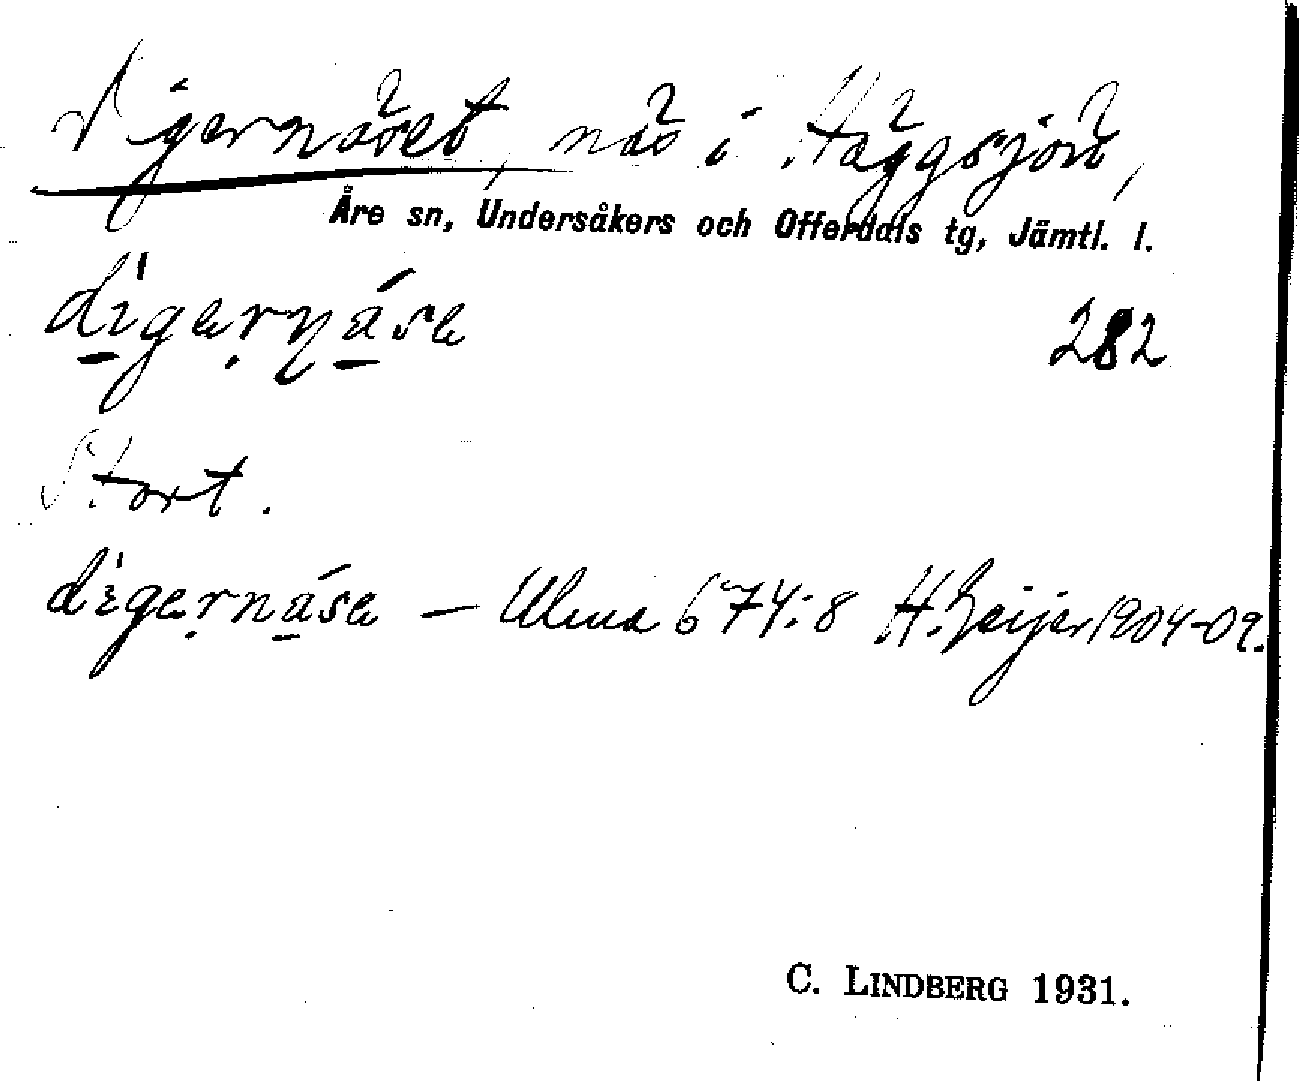 Digernäset, näs i Häggsjön,
Åre sn, Undersåkers och Offerdals tg, Jämtl. l.
digernáse
282
Stort.
digernáse – Ulma 674:8 H. Geijer 1904-09.
C. LINDBERG 1931.